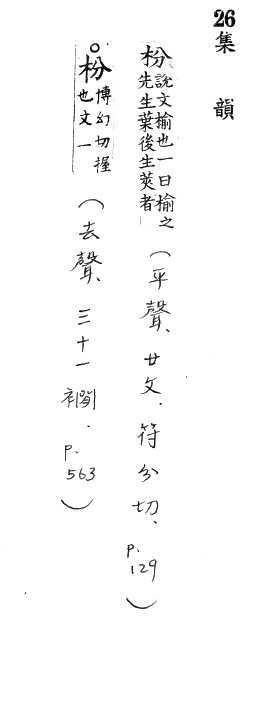 26集韻
枌說文榆也一曰榆之先生葉後生莢者(平聲、廿文.符分切、p.129)
○枌博幻切握也文一(去聲、三十一襉.p.563)